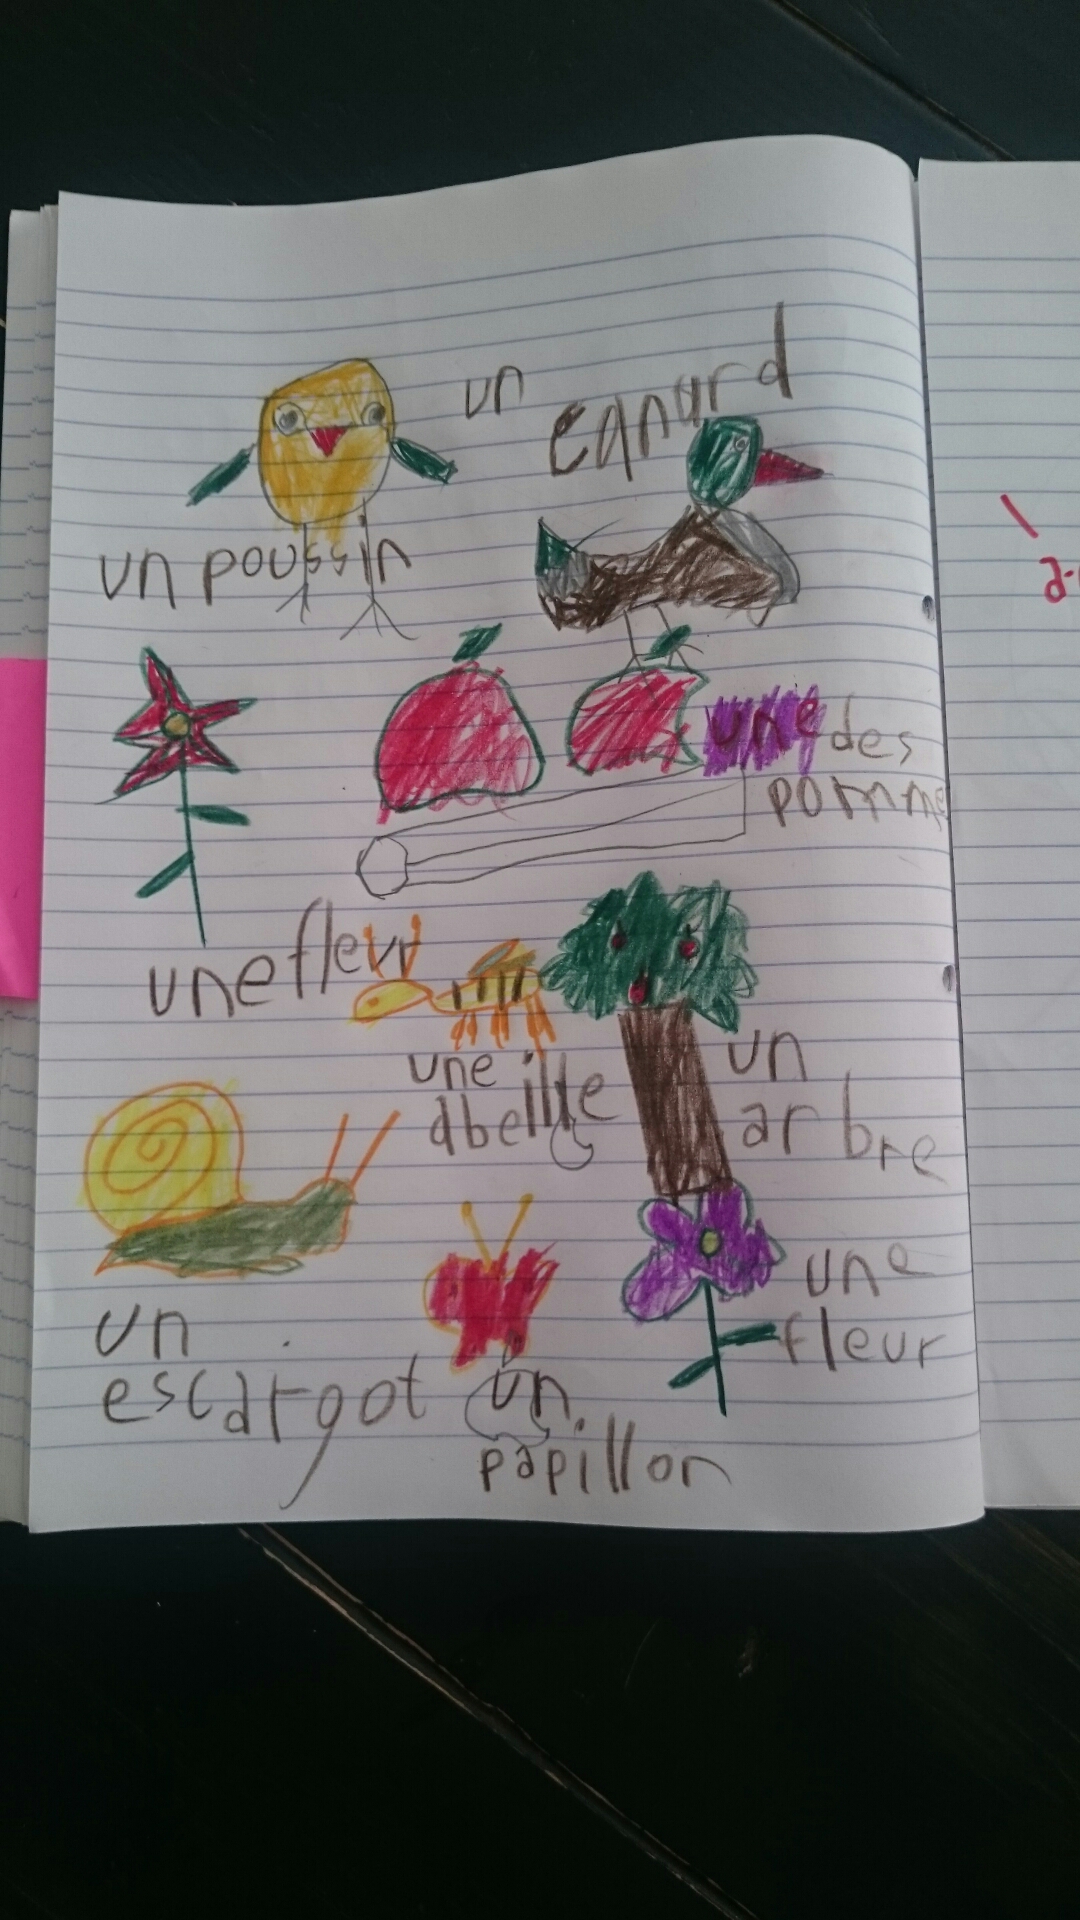 un
eanard
un poussin
une des
pomme
une fleur
une
abeille
un
arbre
une
fleur
un
escargot
un
papillon
a-